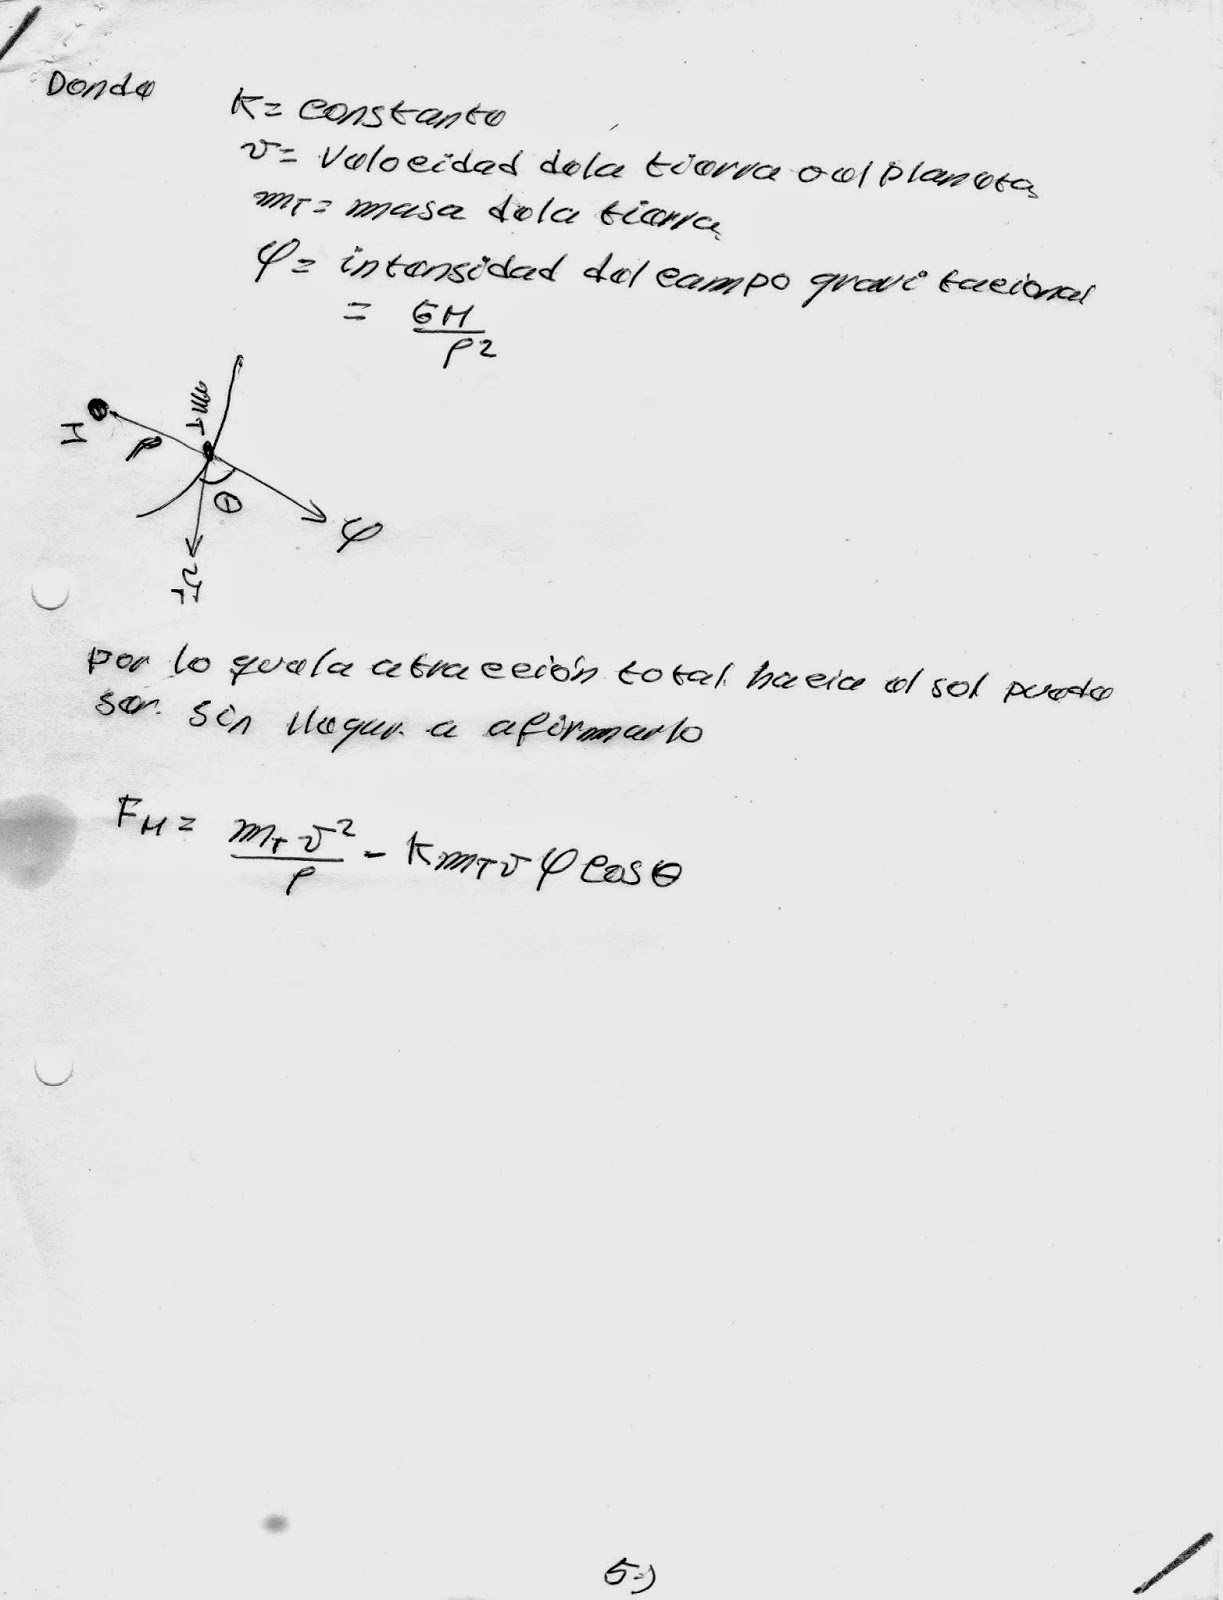 Donde
K = constante
v = velocidad dela tierra o el planeta
m_T = masa dela tierra
φ = intensidad del campo gravitacional
= GM / ρ²
m_T
M
ρ
θ
φ
v_T
por lo quela atracción total hacia el sol puede
ser sin llegar a afirmarlo
F_M = m_T v² / ρ - K m_T v φ cos θ
5-)